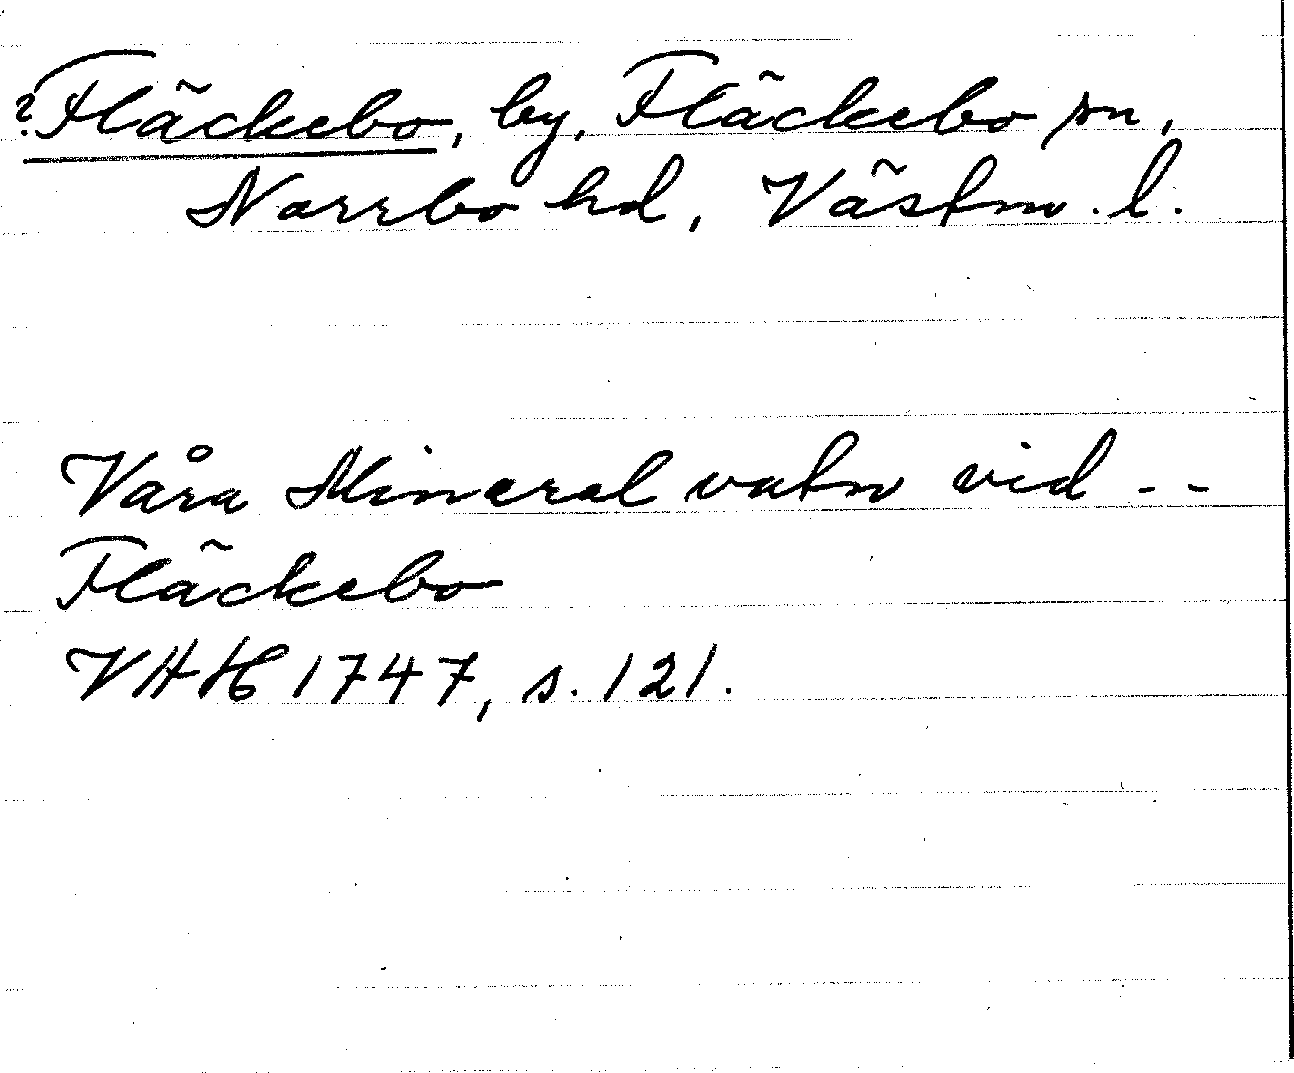 ?Fläckebo, by, Fläckebo sn,
Norrbo hd, Västm. l.
Våra Mineral vatn vid --
Fläckebo
VHH 1747, s. 121.